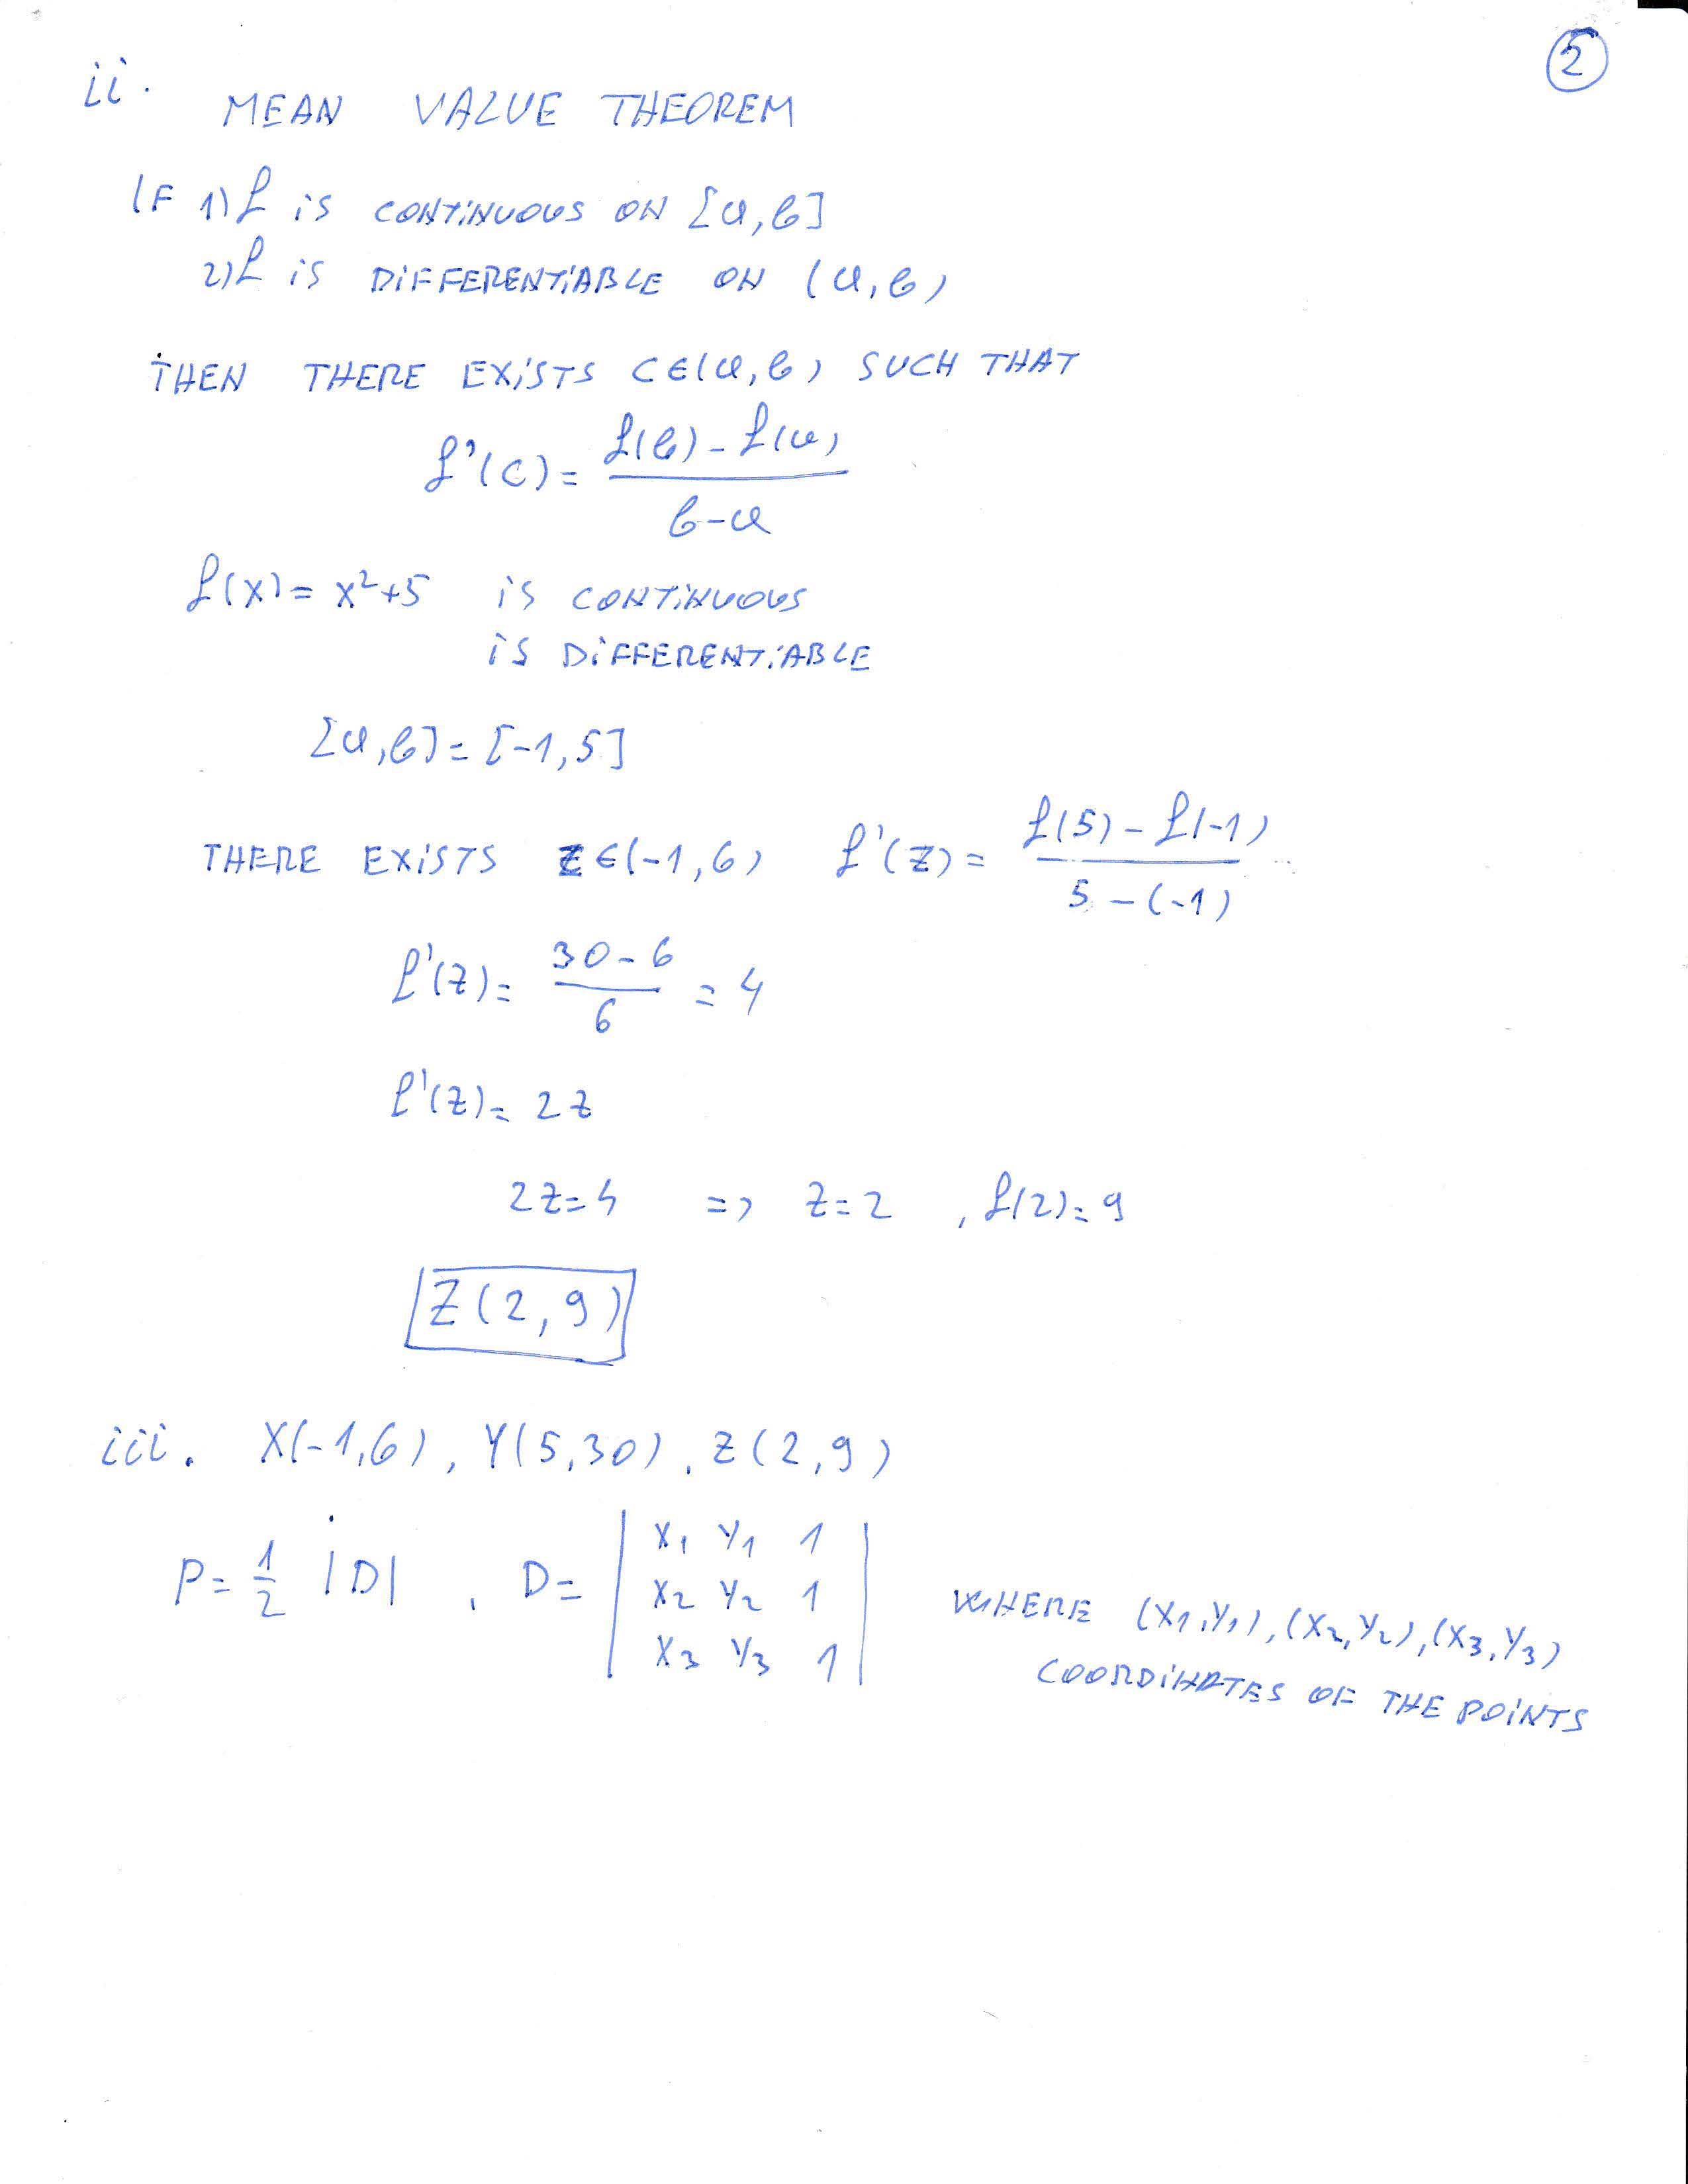 2
ii. MEAN VALUE THEOREM
IF 1) f is CONTINUOUS ON [a,b]
2) f is DIFFERENTIABLE ON (a,b)
THEN THERE EXISTS C∈(a,b) SUCH THAT
f'(c) = (f(b) - f(a)) / (b-a)
f(x) = x²+5 is CONTINUOUS
is DIFFERENTIABLE
[a,b] = [-1,5]
THERE EXISTS Z∈(-1,6) f'(z) = (f(5) - f(-1)) / (5 - (-1))
f'(z) = (30 - 6) / 6 = 4
f'(z) = 2z
2z = 4 => z = 2 , f(2) = 9
Z(2,9)
iii. X(-1,6), Y(5,30), Z(2,9)
P = 1/2 |D| , D = | x₁ y₁ 1 |
| x₂ y₂ 1 | WHERE (x₁,y₁), (x₂,y₂), (x₃,y₃)
| x₃ y₃ 1 | COORDINATES OF THE POINTS